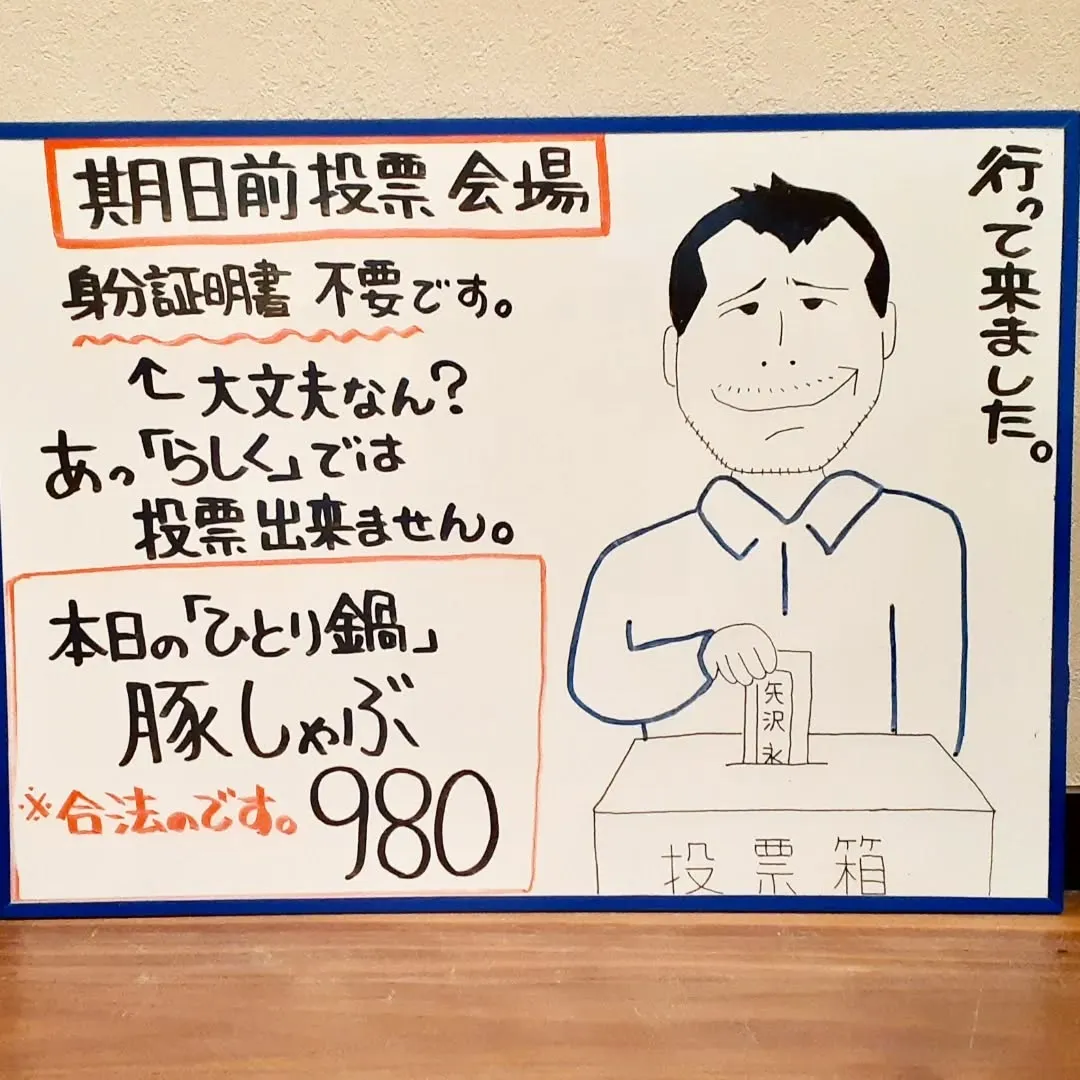 期日前投票会場
身分証明書 不要です。
←大丈夫なん?
あっ「らしく」では
投票出来ません。
本日の「ひとり鍋」
豚しゃぶ
※合法のです。
980
行って来ました。
矢沢永
投票箱